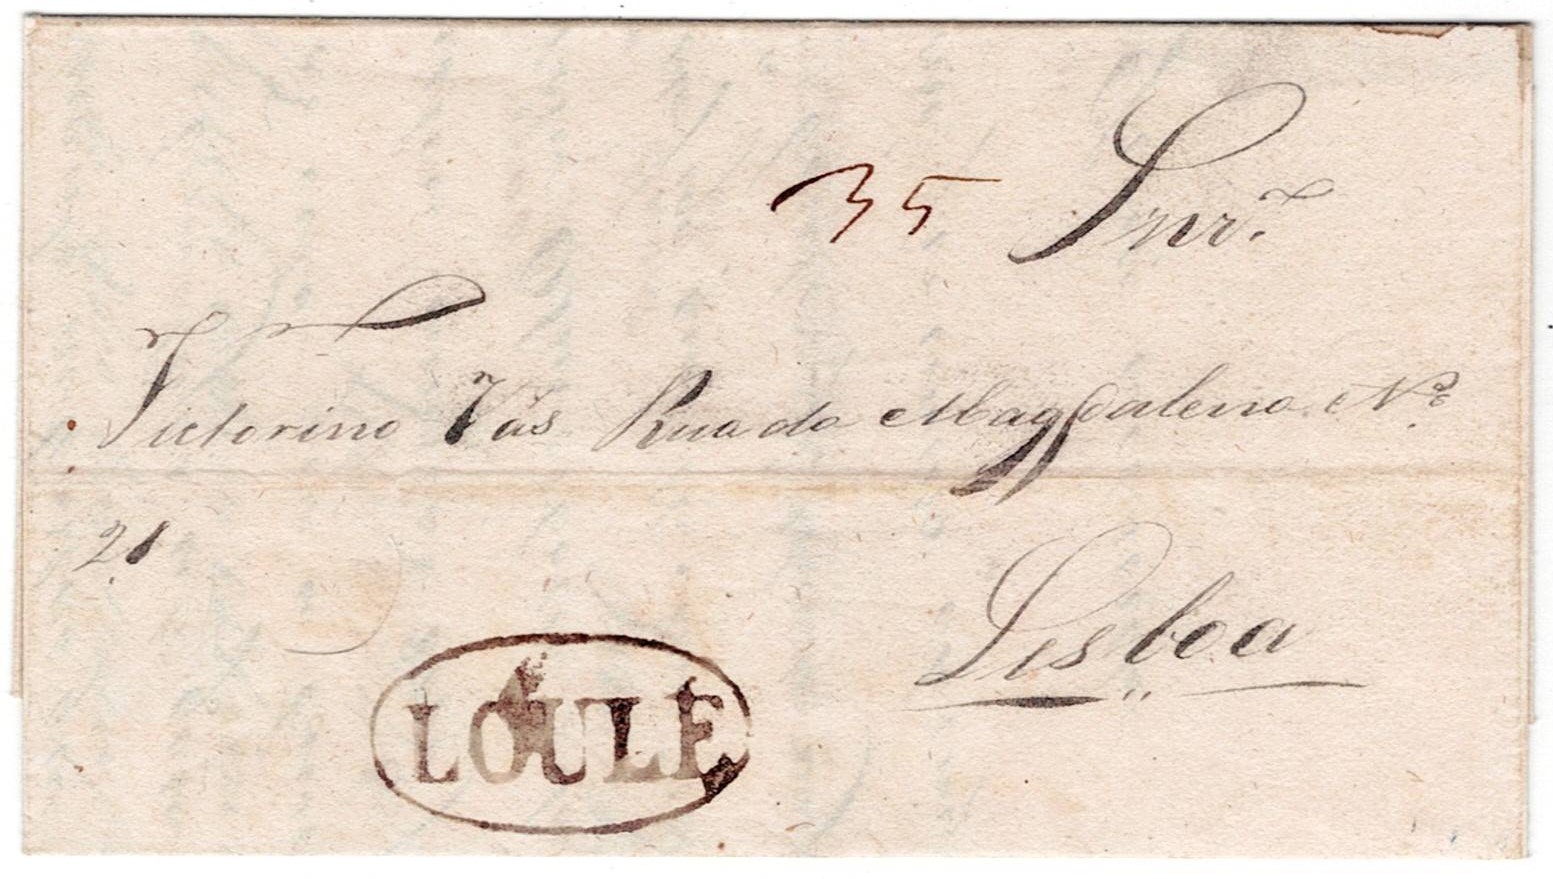 35 Snr.
Victorino Vas Rua da Magdalena No
21
Lisboa
LOULE